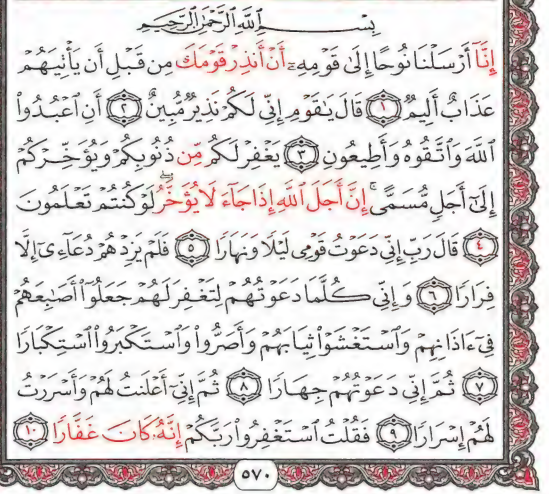 بِسۡمِ ٱللَّهِ ٱلرَّحۡمَٰنِ ٱلرَّحِيمِ
إِنَّآ أَرۡسَلۡنَا نُوحًا إِلَىٰ قَوۡمِهِۦٓ أَنۡ أَنذِرۡ قَوۡمَكَ مِن قَبۡلِ أَن يَأۡتِيَهُمۡ
عَذَابٌ أَلِيمٞ ١ قَالَ يَٰقَوۡمِ إِنِّي لَكُمۡ نَذِيرٞ مُّبِينٌ ٢ أَنِ ٱعۡبُدُواْ
ٱللَّهَ وَٱتَّقُوهُ وَأَطِيعُونِ ٣ يَغۡفِرۡ لَكُم مِّن ذُنُوبِكُمۡ وَيُؤَخِّرۡكُمۡ
إِلَىٰٓ أَجَلٖ مُّسَمًّىۚ إِنَّ أَجَلَ ٱللَّهِ إِذَا جَآءَ لَا يُؤَخَّرُۚ لَوۡ كُنتُمۡ تَعۡلَمُونَ
٤ قَالَ رَبِّ إِنِّي دَعَوۡتُ قَوۡمِي لَيۡلٗا وَنَهَارٗا ٥ فَلَمۡ يَزِدۡهُمۡ دُعَآءِيٓ إِلَّا
فِرَارٗا ٦ وَإِنِّي كُلَّمَا دَعَوۡتُهُمۡ لِتَغۡفِرَ لَهُمۡ جَعَلُوٓاْ أَصَٰبِعَهُمۡ
فِيٓ ءَاذَانِهِمۡ وَٱسۡتَغۡشَوۡاْ ثِيَابَهُمۡ وَأَصَرُّواْ وَٱسۡتَكۡبَرُواْ ٱسۡتِكۡبَارٗا
٧ ثُمَّ إِنِّي دَعَوۡتُهُمۡ جِهَارٗا ٨ ثُمَّ إِنِّيٓ أَعۡلَنتُ لَهُمۡ وَأَسۡرَرۡتُ
لَهُمۡ إِسۡرَارٗا ٩ فَقُلۡتُ ٱسۡتَغۡفِرُواْ رَبَّكُمۡ إِنَّهُۥ كَانَ غَفَّارٗا ١٠
٥٧٠